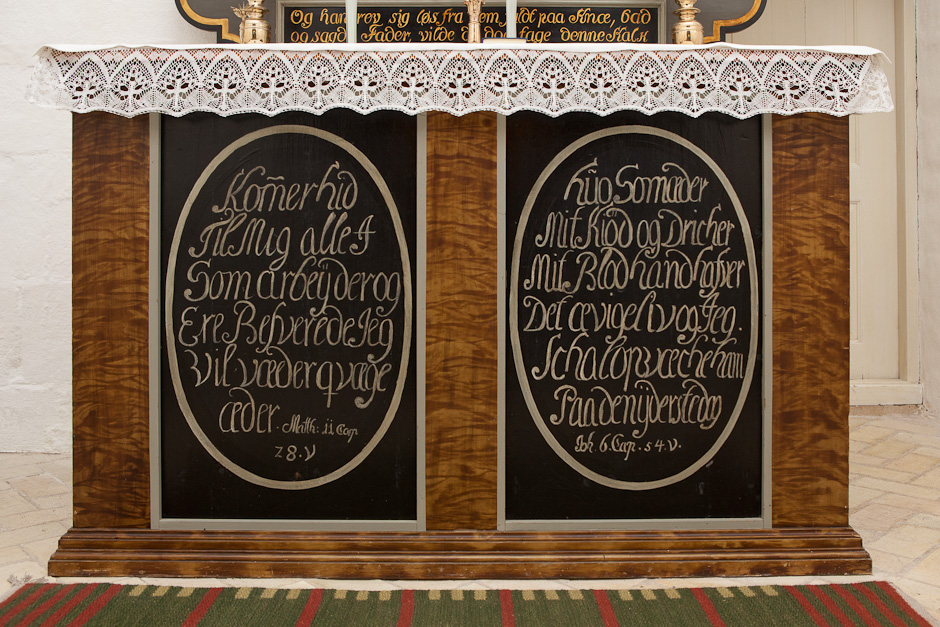 Og han rev sig løs fra dem, faldt paa Knæ, bad
og sagde Fader, vilde du dog tage denne Kalk
Kom̃er hid
Til Mig alle I
Som arbeÿder og
Ere Besverede Jeg
Vil væder qvage
æder. Matth: ii Cap
28. V
hũo Som æder
Mit Kiöd og Dricher
Mit Blod hand hafver
Det ævige Liv og Jeg.
Schal opvæche ham
Paa den ÿderste dag
Joh. 6. Cap. 54. V.